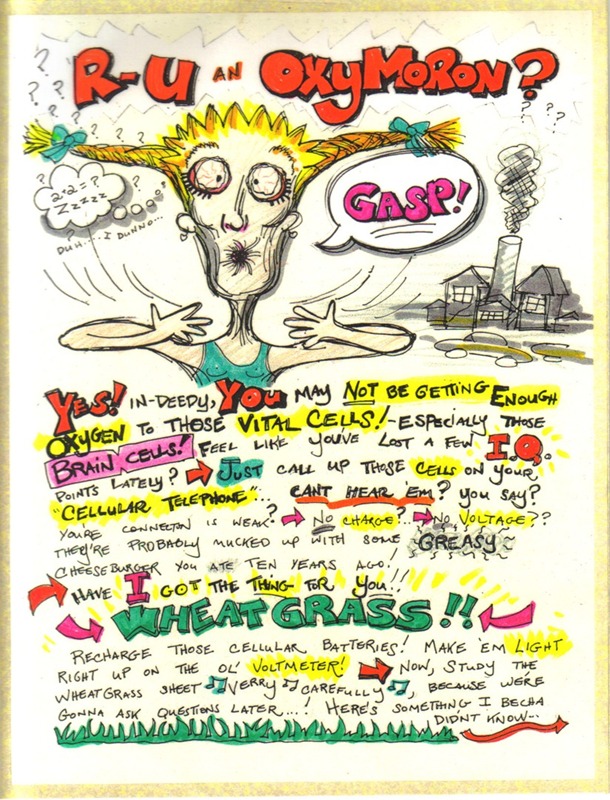 R-U AN OXYMORON?
? ? ? ? ? ? ? ? ?
? ? ? ? ?
2+2=?
ZZZZZ
DUH....I DUNNO...
GASP!
YES! IN-DEEDY, YOU MAY NOT BE GETTING ENOUGH
OXYGEN TO THOSE VITAL CELLS! - ESPECIALLY THOSE
BRAIN CELLS! FEEL LIKE YOU'VE LOST A FEW I.Q.
POINTS LATELY? JUST CALL UP THOSE CELLS ON YOUR
"CELLULAR TELEPHONE"... CAN'T HEAR 'EM? YOU SAY?
YOU'RE CONNECTON IS WEAK? NO CHARGE?.. NO VOLTAGE??
THEY'RE PROBABLY MUCKED UP WITH SOME GREASY
CHEESEBURGER YOU ATE TEN YEARS AGO!
HAVE I GOT THE THING FOR YOU!!
WHEATGRASS!!
RECHARGE THOSE CELLULAR BATTERIES! MAKE 'EM LIGHT
RIGHT UP ON THE OL' VOLTMETER! NOW, STUDY THE
WHEATGRASS SHEET ♫ VERRY ♫ CAREFULLY ♫, BECAUSE WE'RE
GONNA ASK QUESTIONS LATER....! HERE'S SOMETHING I BECHA
DIDN'T KNOW...